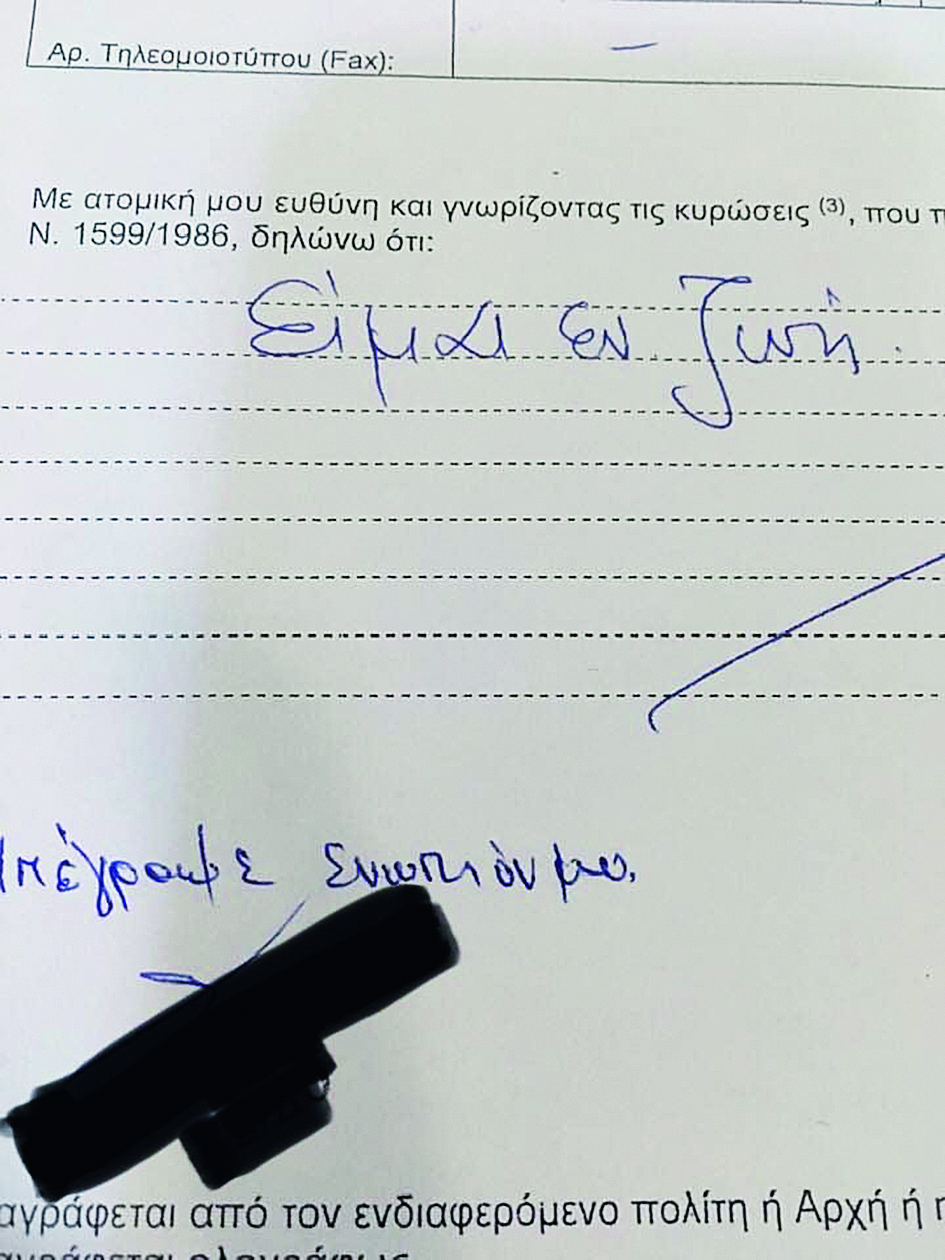 Αρ. Τηλεομοιοτύπου (Fax): –
Με ατομική μου ευθύνη και γνωρίζοντας τις κυρώσεις (3), που
Ν. 1599/1986, δηλώνω ότι:
Είμαι εν ζωή.
Υπέγραψε ενώπιόν μου.
αγράφεται από τον ενδιαφερόμενο πολίτη ή Αρχή ή